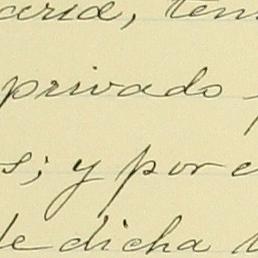 aria, ten
privado
s; y por e
de dicha